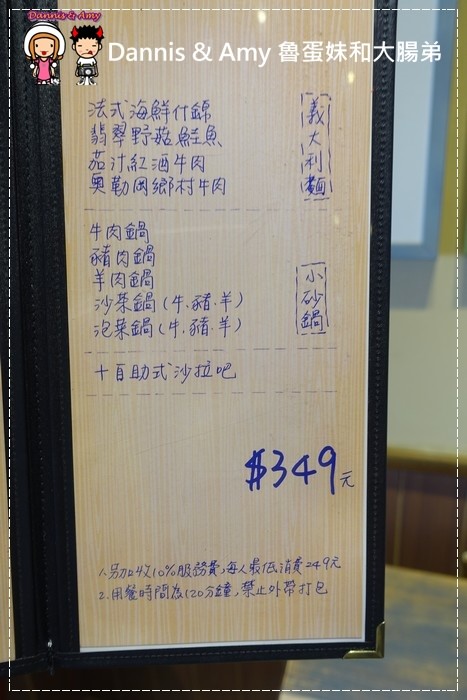 Dannis & Amy
Dannis & Amy 魯蛋妹和大腸弟
義大利麵
法式海鮮什錦
翡翠野菇鮭魚
茄汁紅酒牛肉
奧勒岡鄉村牛肉
小砂鍋
牛肉鍋
豬肉鍋
羊肉鍋
沙茶鍋(牛.豬.羊)
泡菜鍋(牛.豬.羊)
+自助式沙拉吧
$349元
1.另加收10%服務費,每人最低消費249元
2.用餐時間為120分鐘,禁止外帶打包